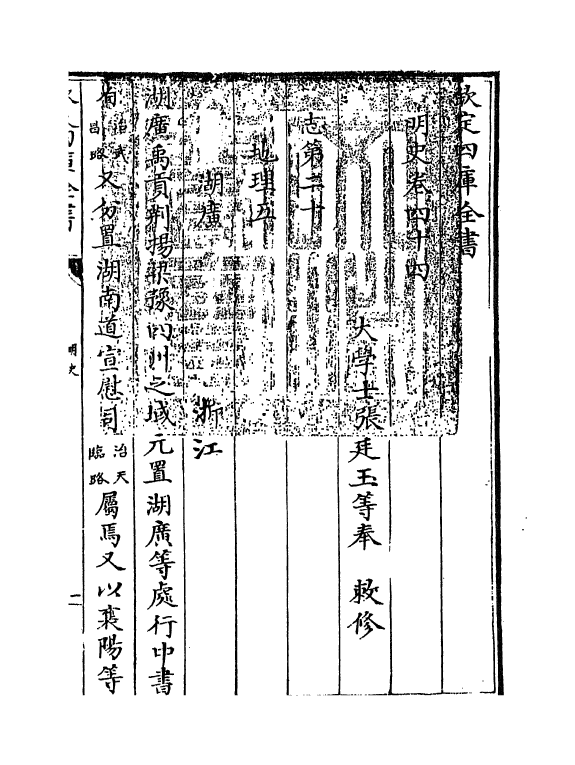 欽定四庫全書
明史卷四十四
大學士張廷玉等奉 敕修
志第二十
地理五
湖廣 浙江
湖廣禹貢荆揚梁豫四州之域元置湖廣等處行中書
省治武昌路又分置湖南道宣慰司治天臨路屬焉又以襄陽等
明史